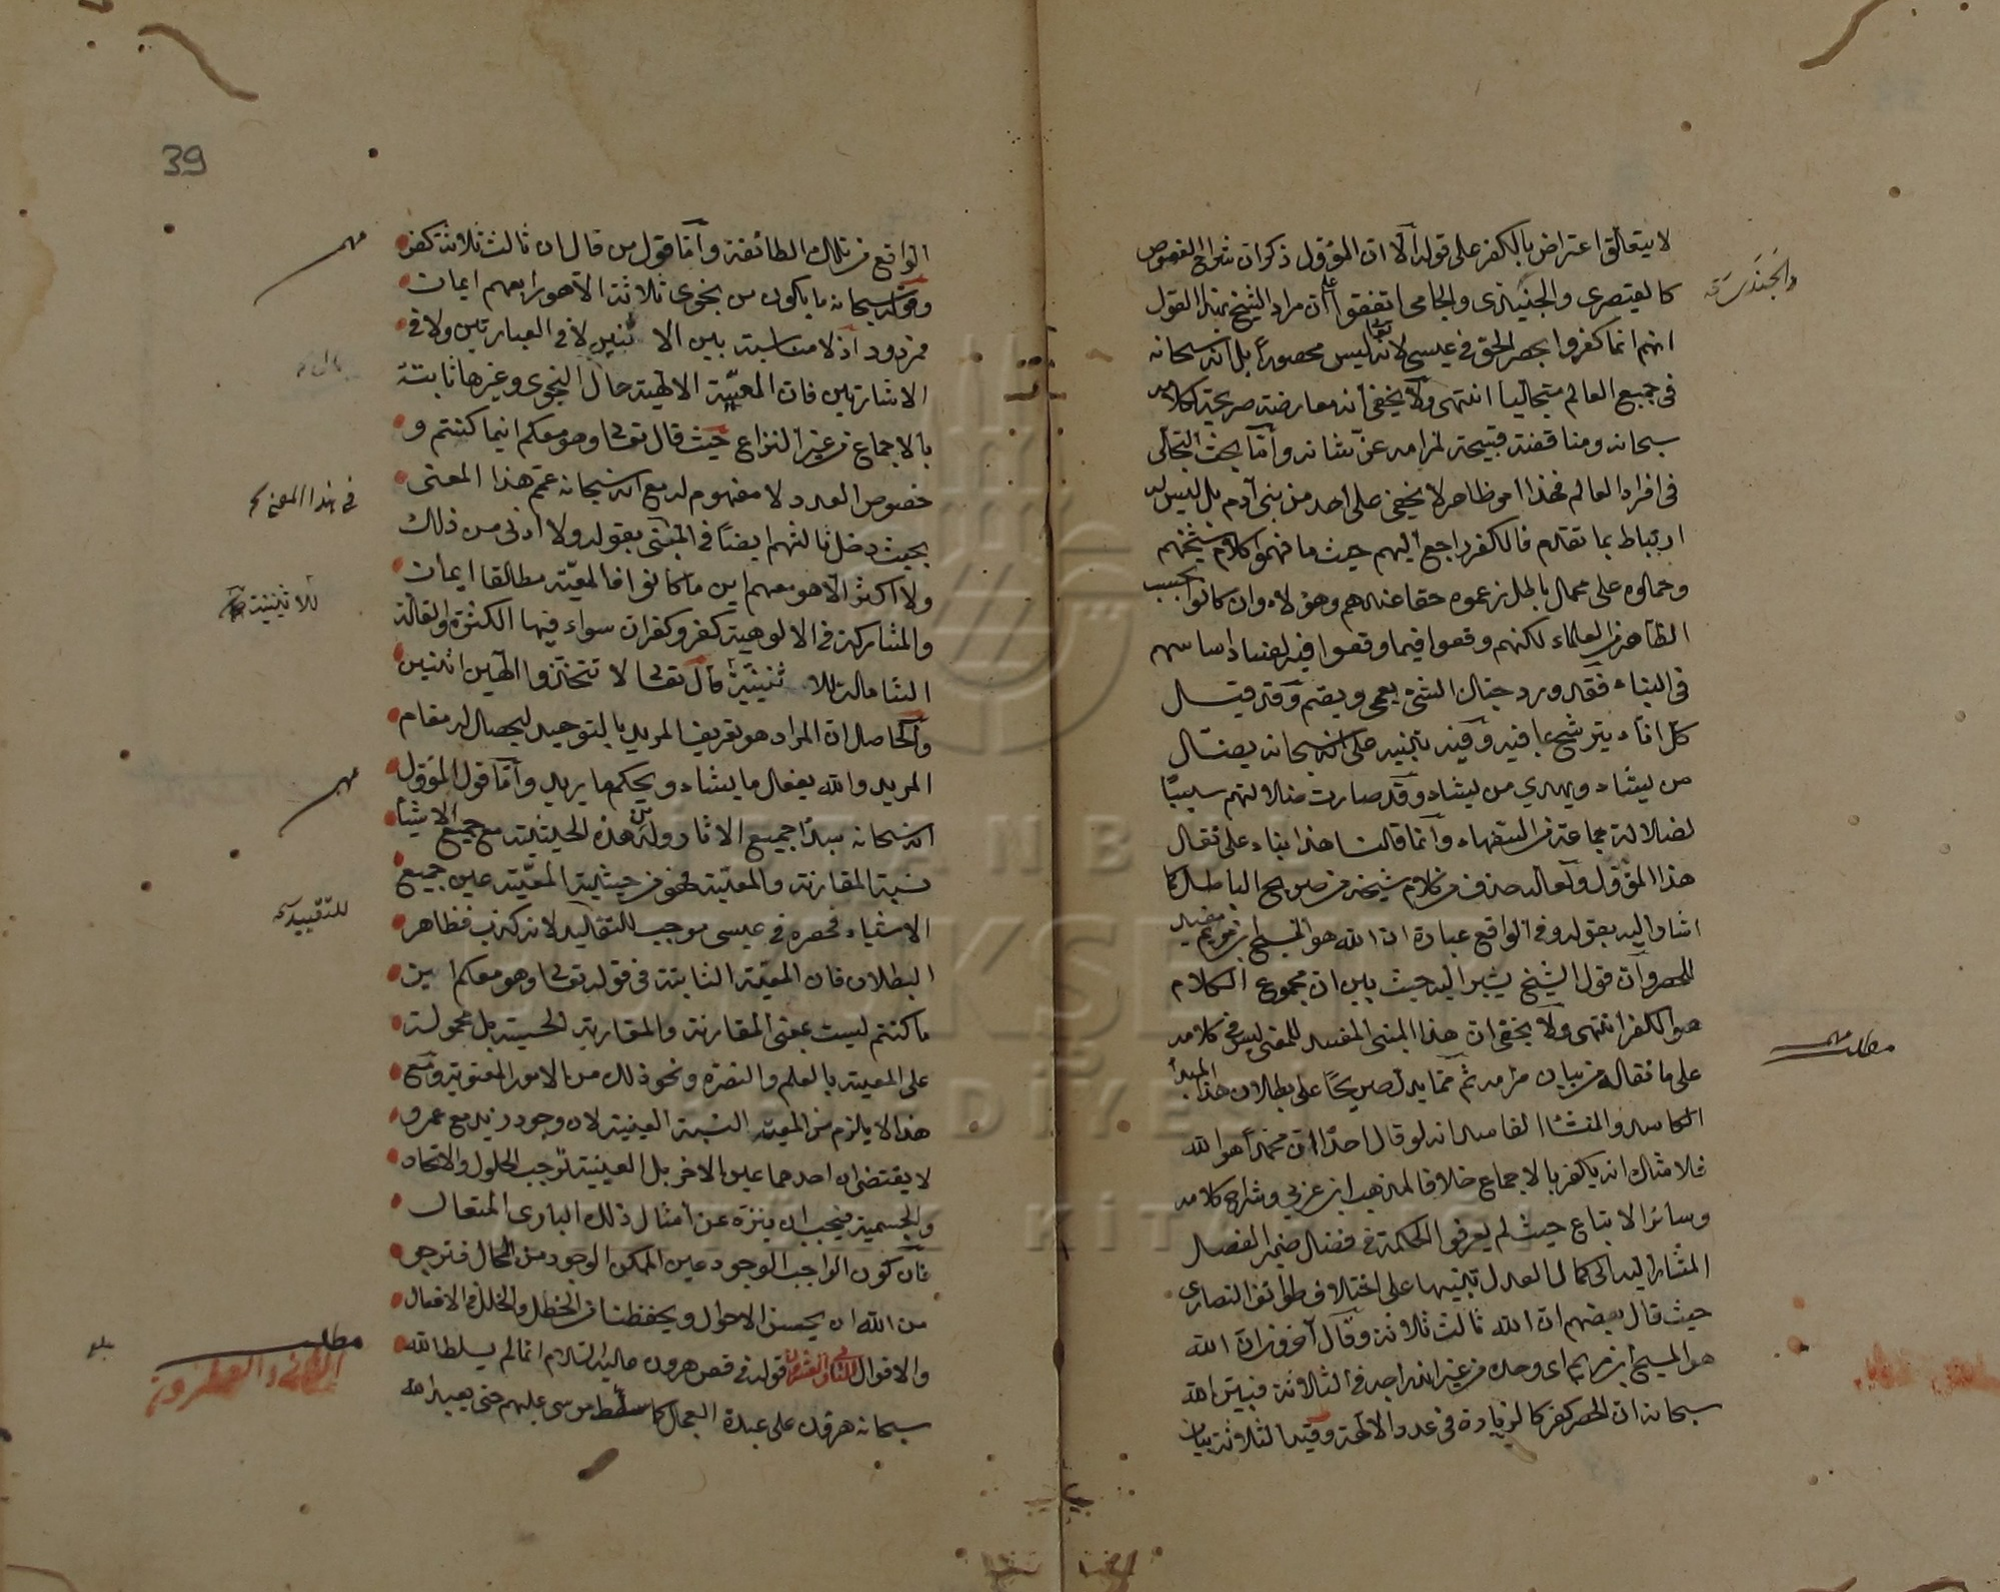 لا يتعلق اعتراض بالكفر على قوله الا ان المؤول ذكر ان شراح الفصوص
كالقيصرى والجنيدى والجامى اتفقوا على ان مراد الشيخ بهذا القول
انهم انما كفروا بحصر الحق فى عيسى لانه تعا ليس محصوراً بل انه سبحانه
فى جميع العالم متجليا انتهى ولا يخفى أنه معارضة صريحة لكلامه
سبحانه ومناقضة قبيحة لمرامه عز شانه وأما بحث التجلى
فى افراد العالم فهذا امر ظاهر لا يخفى على أحد من بنى آدم بل ليس له
ارتباط بما تقدم فالكفر راجع اليهم حيث ما فهموا كلام شيخهم
وحملوه على محمل باطل زعموه حقا عندهم وهؤلاء وان كانوا بحسب
الظاهر من العلماء لكنهم وقعوا فيما وقعوا فيه لفساد اساسهم
فى البناء فقد ورد حبك الشئ يعمى ويصم وقد قيل
كل اناء يترشح بما فيه وفيه تنبيه على انه سبحانه يضل
من يشاء ويهدي من يشاء وقد صارت ضلالتهم سببًا
لضلالة جماعة من السفهاء وانما قلت هذا بناء على نقل
هذا المؤول ولعله حذف من كلام شيخه من صريح الباطل كما
اشار اليه بقوله وفى الواقع عبارة ان الله هو المسيح ابن مريم مفيد
للحصر وان قول الشيخ يشير اليه حيث بين ان مجموع الكلام
هو الكفر انتهى ولا يخفى ان هذا المبنى المفسد للمعنى ليس فى كلامه
على ما نقله من بيان مرامه ثم مما يدل صريحًا على بطلان هذا المبدأ
الكاسد والمنشا الفاسد انه لو قال احدًا ان محمدًا هو الله
فلا شك انه يكفر بالاجماع خلافا لمذهب ابن عربى وشراح كلامه
وسائر الاتباع حيث لم يعرفوا الحكمة فى فضل ضمير الفصل
المشار اليه الى كمال العدل تنبيها على اختلاف طوائف النصارى
حيث قال بعضهم ان الله ثالث ثلاثة وقال آخرون ان الله
هو المسيح ابن مريم اى وحده من غير اندراجه فى الثلاثة فبين الله
سبحانه ان الحصر كفر كالزيادة فى عدد الالهة وقيد الثلاثة بيان
مطلب مهم
39
الواقع من تلك الطائفة وأما قول من قال ان ثالث ثلاثة كفر
وقوله سبحانه ما يكون من نجوى ثلاثة الا هو رابعهم ايمان
فمردود اذ لا مناسبة بين الاثنين لا فى العبارتين ولا فى
الاشارتين فان المعية الالهية حال النجوى وغيرها ثابتة
بالاجماع من غير النزاع حيث قال تعا وهو معكم اينما كنتم و
خصوص العدد لا مفهوم له مع انه سبحانه عمم هذا المعنى
بحيث دخل ثالثهم ايضاً فى المبنى بقوله ولا ادنى من ذلك
ولا اكثر الا هو معهم اين ما كانوا فالمعية مطلقا ايمان
والمشاركة فى الالوهية كفر وكفران سواء فيها الكثرة والقلة
الشاملة للاثنينية قال تعا لا تتخذوا الهين اثنين
والحاصل ان المراد هو تعريف المريد بالتوحيد ليحصل له مقام
المريد والله يفعل ما يشاء ويحكم ما يريد وأما قول المؤول
انه سبحانه مبدأ جميع الاثار وله من هذه الحيثية مع جميع الاشيأ
نسبة المقارنة والمعية فهو من حيثية المعية عين جميع
الاشياء فحصره فى عيسى موجب للتقييد لانه كذب فظاهر
البطلان فان المعية الثابتة فى قوله تعا وهو معكم اين
ما كنتم ليست بمعنى المقارنة والمقاربة الحسية بل محمولة
على المعية بالعلم والنصرة ونحو ذلك من الامور المعنوية ومع
هذا لا يلزم من المعية النسبة العينية لان وجود زيد مع عمرو
لا يقتضى ان احدهما عين الاخر بل العينية توجب الحلول والاتحاد
والجسمية فيجب ان ينزه عن أمثال ذلك البارى المتعال
فان كون الواجب الوجود عين الممكن الوجود من المحال فنرجو
من الله ان يحسن الاحوال ويحفظنا من الخطل والخلل فى الافعال
والاقوال الثانى والعشرون قوله فى قصص هرون عليه السلام انما لم يسلط الله
سبحانه هرون على عبدة العجل كما سلط موسى عليهم حتى يعبد الله
مهم
فى هذا المعنى
للاثنينية
مهم
للتقييد
مطلب
الثانى والعشرون